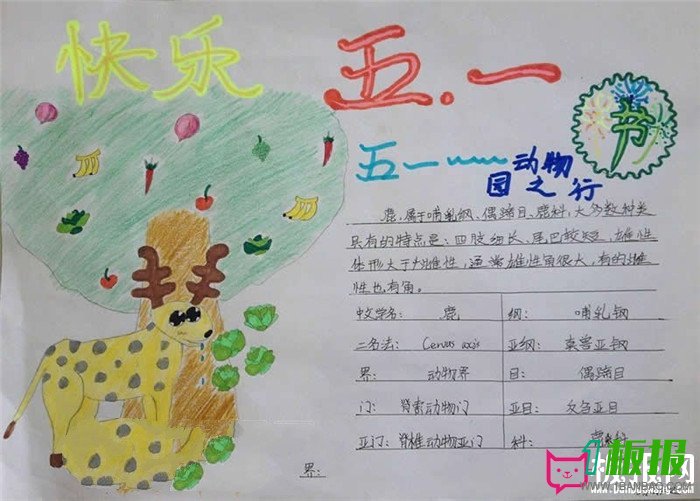 快乐 五.一
节
五一
动物
园之行
鹿，属于哺乳钢、偶蹄目、鹿科，大多数种类
具有的特点是：四肢细长、尾巴较短，雄性
体形大于雌性，通常雄性角很大，有的雌
性也有角。
中文学名： 鹿 纲： 哺乳钢
二名法： Cervus axis 亚纲： 真兽亚钢
界： 动物界 目： 偶蹄目
门： 脊索动物门 亚目：
亚门：脊椎动物亚门 科：
界：
板报
WWW.1BANBAO.COM